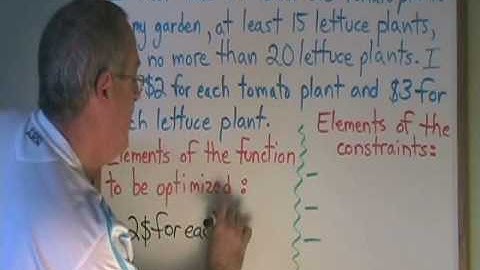 my garden, at least 15 lettuce plants,
no more than 20 lettuce plants. I
$2 for each tomato plant and $3 for
lettuce plant.
Elements of the function
to be optimized:
2$ for each
Elements of the
constraints: